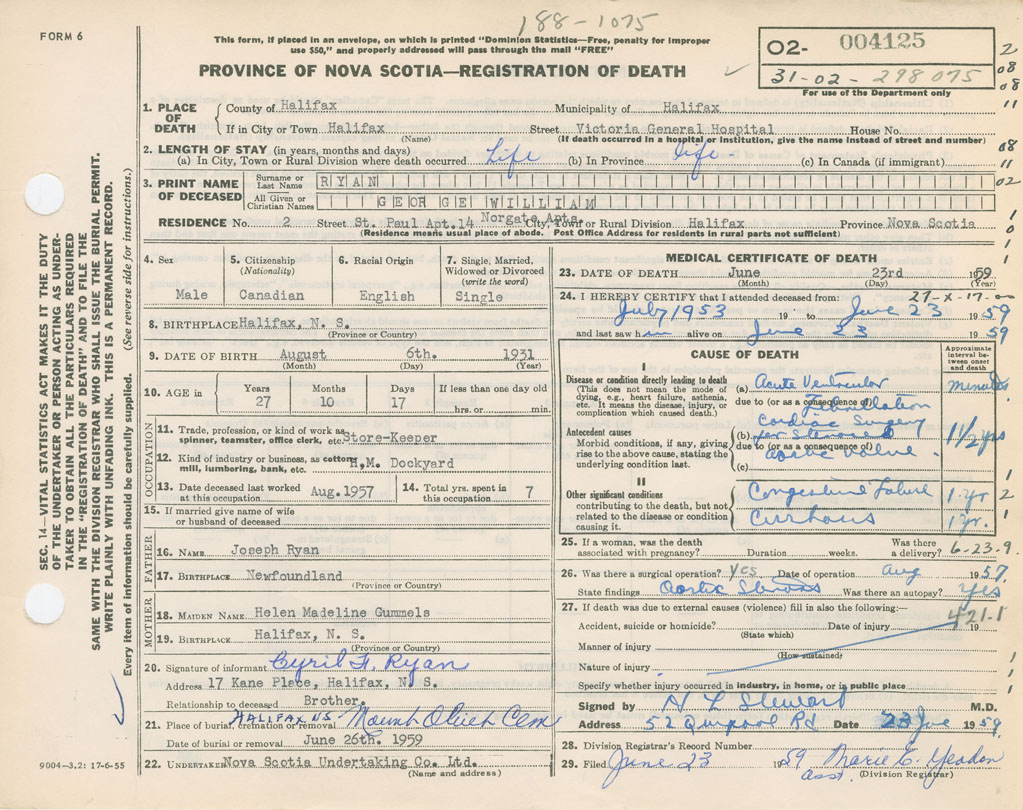 188-1075
FORM 6
This form, if placed in an envelope, on which is printed "Dominion Statistics—Free, penalty for improper
use $50," and properly addressed will pass through the mail "FREE"
PROVINCE OF NOVA SCOTIA—REGISTRATION OF DEATH
02- 004125
31-02-298075
For use of the Department only
2
08
08
11
08
11
02
1. PLACE OF DEATH
County of Halifax Municipality of Halifax
If in City or Town Halifax Street Victoria General Hospital House No.
(Name) (If death occurred in a hospital or institution, give the name instead of street and number)
2. LENGTH OF STAY (in years, months and days)
(a) In City, Town or Rural Division where death occurred Life (b) In Province life - (c) In Canada (if immigrant)
3. PRINT NAME OF DECEASED
Surname or Last Name RYAN
All Given or Christian Names GEORGE WILLIAM
RESIDENCE No. 2 Street St. Paul Apt.14 Norgate Apts. City, Town or Rural Division Halifax Province Nova Scotia
(Residence means usual place of abode. Post Office Address for residents in rural parts not sufficient)
4. Sex
Male
5. Citizenship
(Nationality)
Canadian
6. Racial Origin
English
7. Single, Married,
Widowed or Divorced
(write the word)
Single
8. BIRTHPLACE Halifax, N. S.
(Province or Country)
9. DATE OF BIRTH August 6th. 1931
(Month) (Day) (Year)
10. AGE in
Years Months Days If less than one day old
27 10 17 hrs. or min.
OCCUPATION
11. Trade, profession, or kind of work as
spinner, teamster, office clerk, etc. Store-Keeper
12. Kind of industry or business, as cotton
mill, lumbering, bank, etc. H.M. Dockyard
13. Date deceased last worked
at this occupation Aug.1957
14. Total yrs. spent in
this occupation 7
15. If married give name of wife
or husband of deceased
FATHER
16. NAME Joseph Ryan
17. BIRTHPLACE Newfoundland
(Province or Country)
MOTHER
18. MAIDEN NAME Helen Madeline Gummels
19. BIRTHPLACE Halifax, N. S.
(Province or Country)
20. Signature of informant Cyril F. Ryan
Address 17 Kane Place, Halifax, N. S.
Relationship to deceased Brother.
21. Place of burial, cremation or removal HALIFAX NS. Mount Olivet Cem
Date of burial or removal June 26th. 1959
22. UNDERTAKER Nova Scotia Undertaking Co. Ltd.
(Name and address)
MEDICAL CERTIFICATE OF DEATH
23. DATE OF DEATH June 23rd 1959
(Month) (Day) (Year)
24. I HEREBY CERTIFY that I attended deceased from: 27-x-17-00
July 1953 19 to June 23 1959
and last saw him alive on June 23 1959
CAUSE OF DEATH
Approximate
interval be-
tween onset
and death
I
Disease or condition directly leading to death
(This does not mean the mode of
dying, e.g., heart failure, asthenia,
etc. It means the disease, injury, or
complication which caused death.)
(a) Acute Ventricular minutes
due to (or as a consequence of)
Fibrillation
Antecedent causes
Morbid conditions, if any, giving
rise to the above cause, stating the
underlying condition last.
Cardiac Surgery
(b) for Stenosed 1 1/2 yrs
due to (or as a consequence of)
Aortic Valve.
(c)
II
Other significant conditions
contributing to the death, but not
related to the disease or condition
causing it.
Congestive Failure 1 yr 2
Cirrhosis 1 yr. 1
25. If a woman, was the death Was there
associated with pregnancy? Duration weeks. a delivery? 6-23-9
26. Was there a surgical operation? yes Date of operation Aug 1957
State findings Aortic Stenosis Was there an autopsy? Yes
27. If death was due to external causes (violence) fill in also the following:—
421.1
Accident, suicide or homicide? Date of injury 19
(State which)
Manner of injury
(How sustained)
Nature of injury
Specify whether injury occurred in industry, in home, or in public place
Signed by H L Stewart M.D.
Address 52 Quinpool Rd Date 23 June 1959
28. Division Registrar's Record Number
29. Filed June 23 1959 Marie E. Yeadon
asst. (Division Registrar)
SEC. 14—VITAL STATISTICS ACT MAKES IT THE DUTY
OF THE UNDERTAKER OR PERSON ACTING AS UNDER-
TAKER TO OBTAIN ALL THE PARTICULARS REQUIRED
IN THE "REGISTRATION OF DEATH" AND TO FILE THE
SAME WITH THE DIVISION REGISTRAR WHO SHALL ISSUE THE BURIAL PERMIT.
WRITE PLAINLY WITH UNFADING INK. THIS IS A PERMANENT RECORD.
Every item of information should be carefully supplied. (See reverse side for instructions.)
9004—3.2: 17-6-55